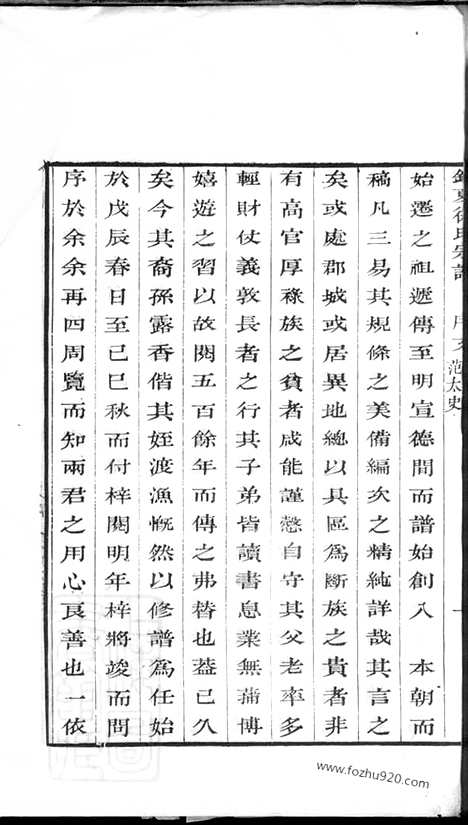 東徐氏宗譜 序文 范太史 一
始遷之祖遞傳至明宣德間而譜始創入 本朝而
稿凡三易其規條之美備編次之精純詳哉其言之
矣或處郡城或居異地總以具區爲斷族之貴者非
有高官厚祿族之貧者咸能謹慤自守其父老率多
輕財仗義敦長者之行其子弟皆讀書息業無蒲博
嬉遊之習以故閱五百餘年而傳之弗替也葢已久
矣今其裔孫露香偕其姪渡漁慨然以修譜爲任始
於戊辰春日至己巳秋而付梓閱明年梓將竣而問
序於余余再四周覽而知兩君之用心良善也一依
www.fozhu920.com